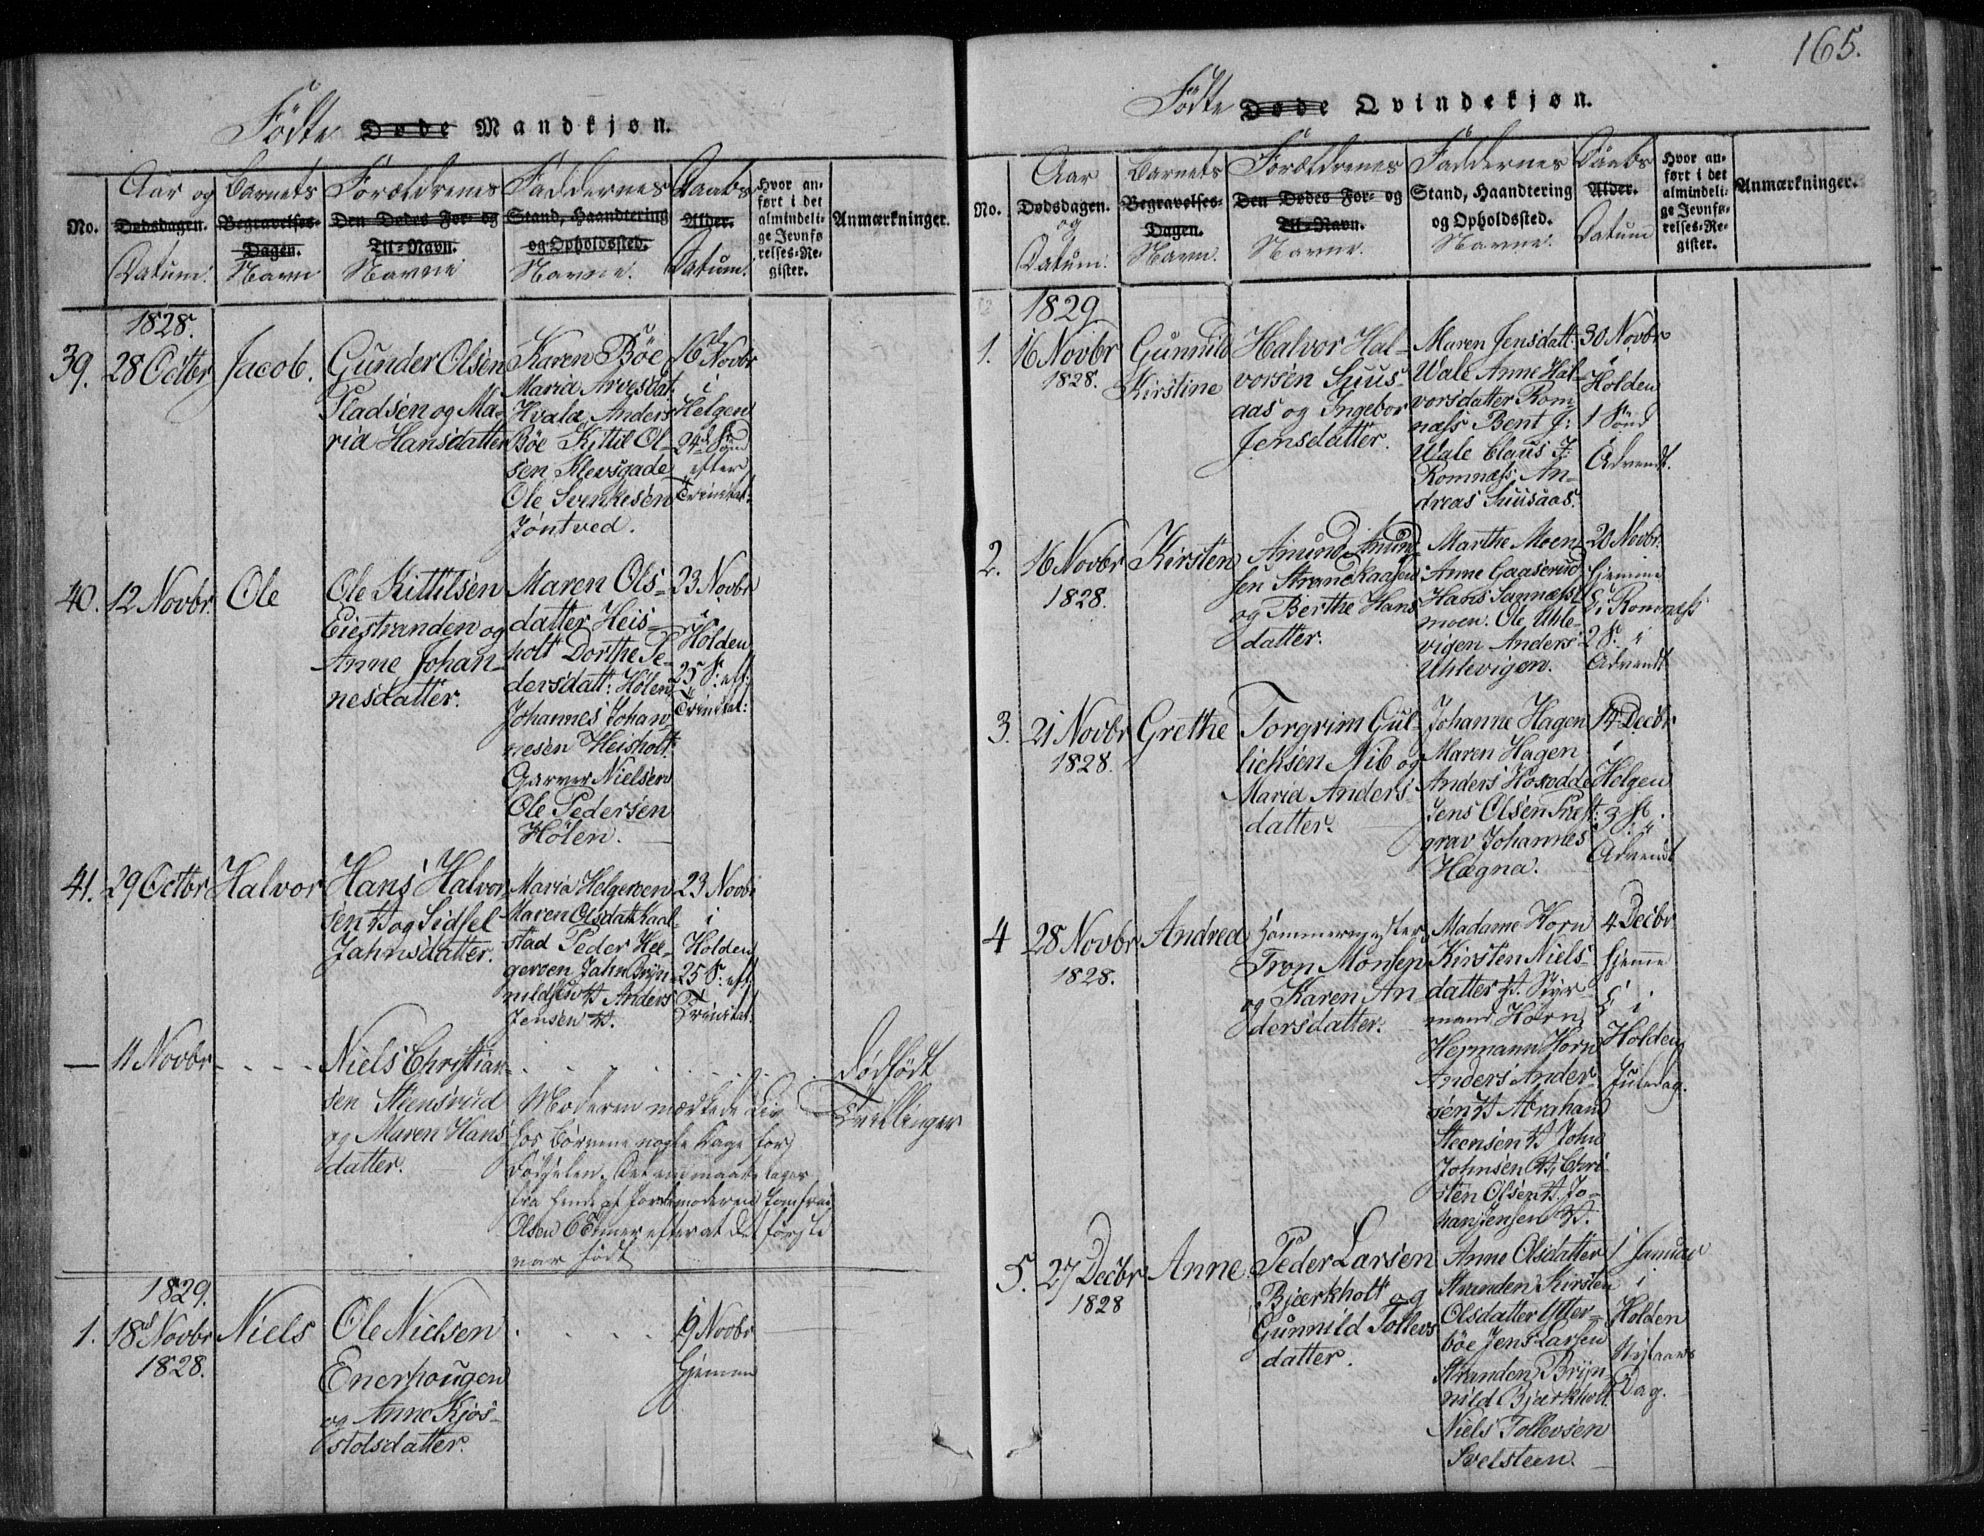 165.
Fødte Døde Mandkjøn.
No.
Aar og
Dødsdagen.
Datum.
Barnets
Begravelses-
Dagen.
Navn
Forældrenes
Den Dødes For- og
Til-Navn.
Navne
Faddernes
Stand, Haandtering
og Opholdssted.
Navne.
Daabs
Alder.
Datum.
Hvor an-
ført i det
almindeli-
ge Jevnfø
relses-Re-
gister.
Anmærkninger.
1828.
39.
28 Octbr
Jacob.
Gunder Olsen
Pladsen og Ma-
ria Hansdatter
Karen Bøe
Maria Arvesdat
Hvala Anders
Bøe Kittil Ol-
sen Klevsgade
Ole Svenkesen
Jøntved.
16 Novbr
i
Helgen
24de Søn
efter
Trinitat:
40.
12 Novbr.
Ole
Ole Kittilsen
Eiestranden og
Anne Johan-
nesdatter.
Maren Ols-
datter Heis-
holt Dorthe Pe-
dersdatt: Hølen
Johannes Johan-
nesen Heisholt.
Garver Nielsen
Ole Pedersen
Hølen.
23 Novbr
i
Holden
25 S: eft:
Trinitat:
41.
29 Octbr
Halvor
Hans Halvor
sen og Sidsel
Jahnsdatter.
Maria Helgeroen
Maren Olsdatt. Kaal-
stad Peder Hel-
geroen Jahn Brÿn-
nildsen Anders
Jensen
23 Novbr
i
Holden
25 S: eft
Trinitat.
11 Novbr
Niels Christian-
sen Steensrud
og Maren Hans
datter.
Moderen mærkede Liv
hos Børnene nogle Dage for
Fødselen. Det andet maatte tages
fra hende af Jordemoderen Jomfrue
Olsen 6 Timer efter at det første
var født
Dødfødt
Tvillinger
1829.
1.
18 Novbr
1828.
Niels
Ole Nielsen
Enerhougen
og Anne Kjøs-
tolsdatter.
19 Novbr
Hjemme
Fødte Døde Qvindekjøn.
No.
Aar
Dødsdagen.
og
Datum.
Barnets
Begravelses-
Dagen.
Navn.
Forældrenes
Den Dødes For- og
Til-Navn.
Navne.
Faddernes
Stand, Haandtering
og Opholdssted.
Navne.
Daabs
Alder.
Datum
Hvor an-
ført i det
almindeli-
ge Jevnfø-
relses-Re-
gister.
Anmærkninger.
1829
1.
16 Novbr
1828.
Gunnild
Kirstine
Halvor Hal-
vorsen Suus-
aas og Ingebor
Jensdatter.
Maren Jensdatt:
Wale Anne Hal-
vorsdatter Rom-
næss Bent J:
Wale Claus J:
Romnæss, An-
dreas Suusaas.
30 Novbr
i
Holden
1 Sønd
Advendt.
2.
16 Novbr
1828.
Kirsten
Amund Amund
sen Strandkaasen
og Berthe Hans
datter.
Marthe Moen
Anne Gaaserud
Hans Sannæss
moen. Ole Uhle-
vigen Anders
Uhlevigen.
20 Novbr.
hjemme
& i Romnæss
2 S. i
Advendt
3.
21 Novbr
1828.
Grethe
Torgrim Gul-
lichsen Nib og
Maria Anders-
datter.
Johanne Hagen
Maren Hagen
Anders Hoxodde
Jens Olsen Præst-
grav Johannes
Hægna.
14 Decbr
i
Helgen
3 S.
Advendt
4
28 Novbr
1828.
Andrea
Hammermester
Tron Monsen
og Karen An
dersdatter.
Madame Horn
Kirsten Niels-
datter Styr-
mand Horn
Hermann Horn
Anders Ander-
sen Abraham
Steensen John
Johnsen Chri-
sten Olsen Jo-
han Jensen
4 Decbr
hjemme
& i
Holden
Juledag.
5.
27 Decbr
1828
Anne
Peder Larsen
Bjerkholt og
Gunnild Tollevs
datter.
Anne Olsdatter
Stranden Kirsten
Olsdatter Ytter-
bøe Jens Larsen
Stranden, Brÿn-
nild Bjærkholt.
Niels Tollevsen
Svelsteen.
1 Januar
i
Holden
Nytaars
Dag.